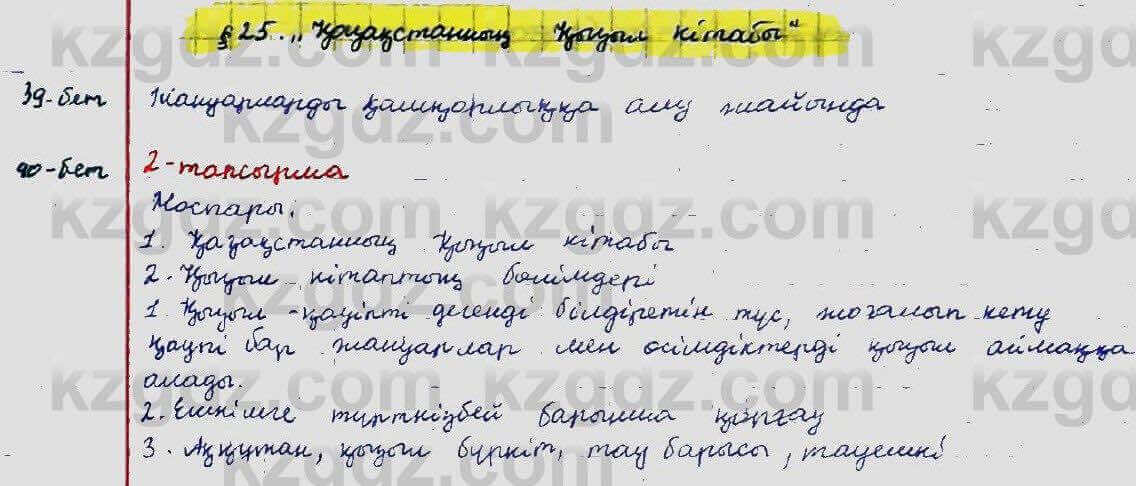 § 25. „Қазақстанның Қызыл кітабы“
39-бет Жануарларды қамқорлыққа алу жайында
40-бет 2-тапсырма
Жоспары:
1. Қазақстанның Қызыл кітабы
2. Қызыл кітаптың бөлімдері
1. Қызыл -қауіпті дегенді білдіретін түс, жоғалып кету
қаупі бар жануарлар мен өсімдіктерді қызыл аймаққа
алады.
2. Ешкімге түрткізбей барынша қорғау
3. Аққұтан, қызыл бүркіт, тау барысы, тауешкі
kzgdz.com